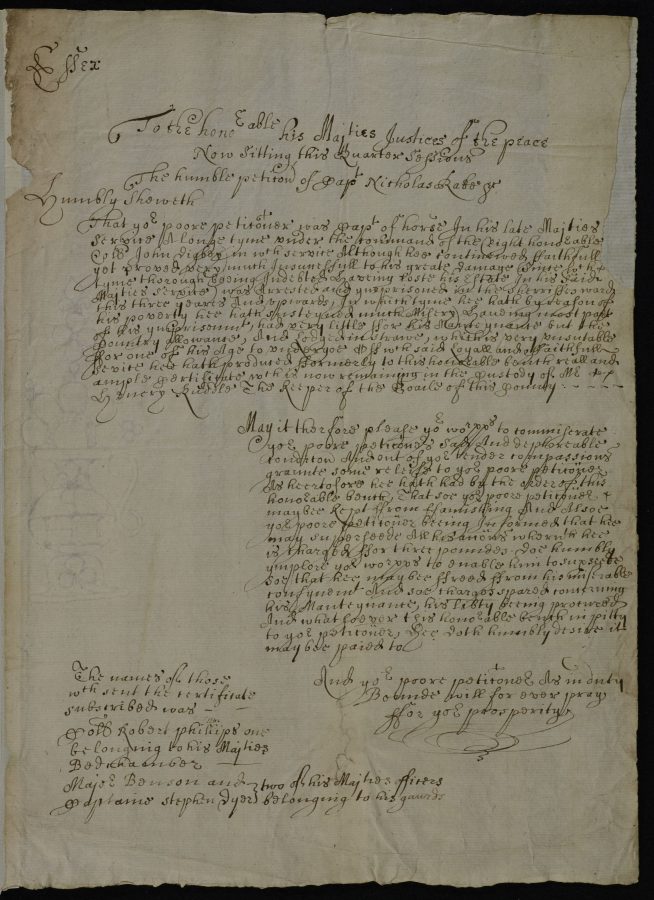 Essex
To the honorable his Majties Justices of the peace
Now sitting this Quarter Sessions
The humble peticon of Capt Nicholas Kabe
Humbly Sheweth
That yor poore petitioner was Capt of horse In his late Majties
Service A longe tyme under the command of the Right honorable
Coll John Digby in wch service Although hee continewed faithfull
yet proved very much unsucesfull to his great damage Since wch
tyme thorough being Indebted (haveing loste his Estate In his said
Majties service) was Arrested and ymprisoned in the
this three yeares And upwards, In which tyme hee hath by reason of
his poverty hee hath susteyned much misery haveing most part
of his ymprisonmt, had very little ffor his Mainteynance but the
Country Allowance, And lodge in strawe, which is very unsutable
ffor one of his Age to undergoe Of wch said Loyall and faithfull
service hee hath produced fformerly to this honorable bench reall and
ample certificate wch is now remaining in the custody of Mr
Henery Riddle The Keeper of the Goaile of this County
May it therfore please yor worpps to commiserate
yor poore peticonrs sad And deploreable
condicon And out of yor tender compassions
graunte some releife to yor poore petitioner
As heertofore hee hath had by the order of this
honorable bench, That soe yor poore peticoner
maybee kept ffrom ffamishing And Alsoe
yor poore petitioner beeing Informed that hee
may superseede All his accons wherwth hee
is charged ffor three poundes doe humbly
ymplore yor worpps to enable him to supersede
soe that hee maybee ffreed ffrom his miserable
confynemt And soe charges spared concerning
his Mainteynance, his libty being procured
And what soever this honorable bench in pitty
to yor peticoner, Hee doth humbly desire it
maybee paied to
And yor poore petitioner As in duty
Bounde will for ever pray
ffor yor prosperity
The names of those
wch sent the certificate
subscribed was
Coll Robert Phillips one
belonging to his Majties
Bedchamber
Major Benson and two of his Majties officers
Captaine Stephen Dyer belonging to his gaurds